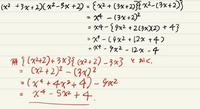 (x²+3x+2)(x²-5x+2) = {x²+(3x+2)}{x²-(3x+2)}
= x⁴-(3x+2)²
= x⁴-{9x²+2(3x)(2)+4}
= x⁴-(9x²+12x+4)
= x⁴-9x²-12x-4
{(x²+2)+3x}{(x²+2)-3x}
= (x²+2)²-(3x)²
= (x⁴+4x²+4)-9x²
= x⁴-5x²+4.